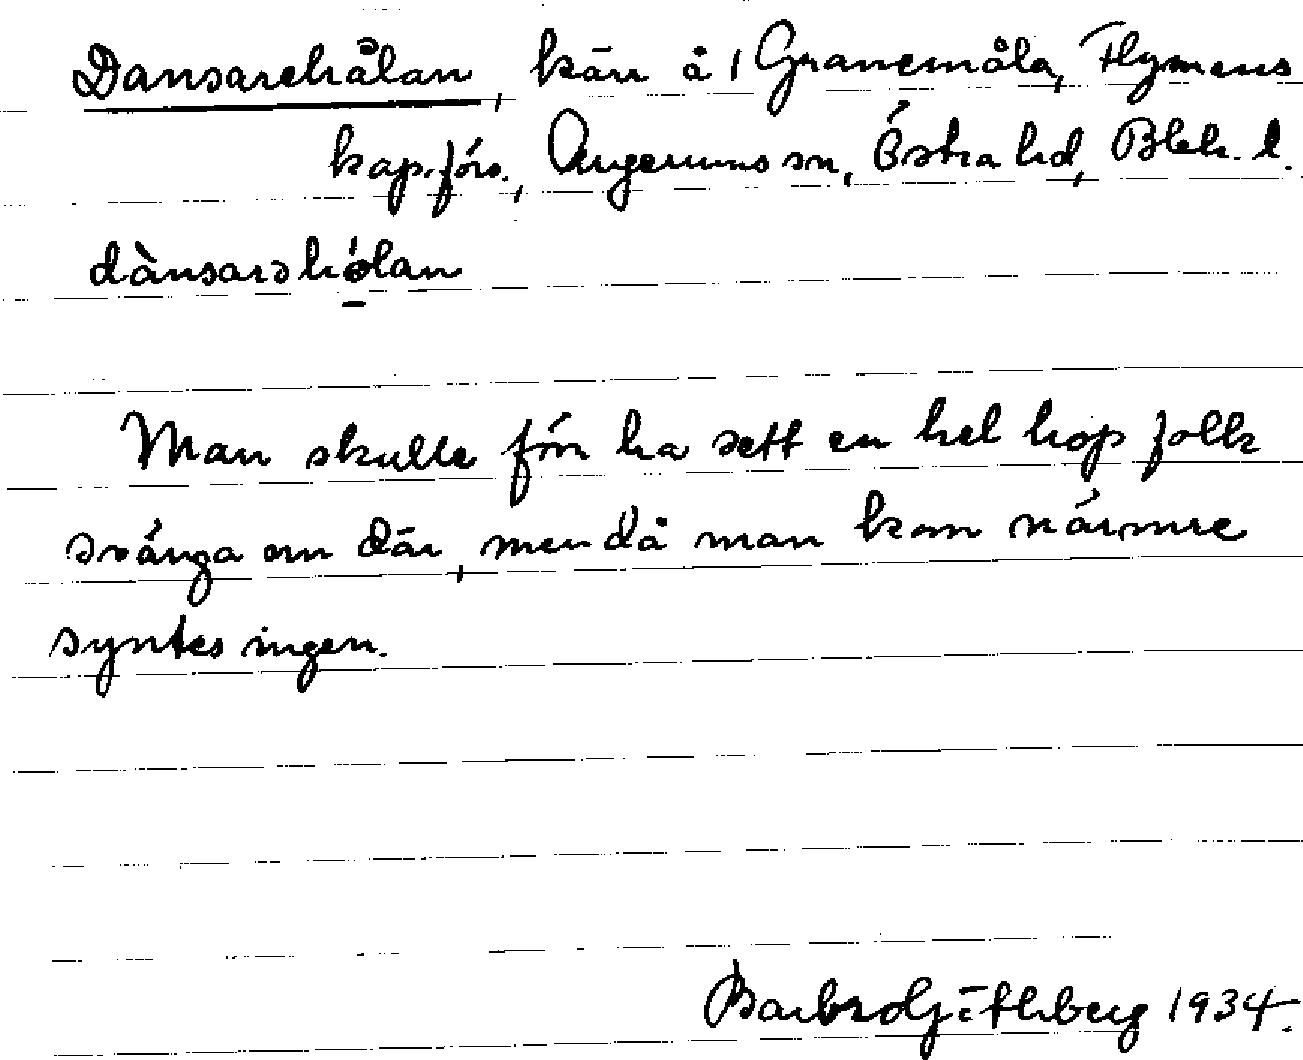 Dansarehålan, kärr å 1 Granemåla, Flymens
kap.förs., Augerums sn, Östra hd, Blek. l.
dànsarəhǿlan
Man skulle förr ha sett en hel hop folk
svänga om där, men då man kom närmre
syntes ingen.
Barbro Göthberg 1934.